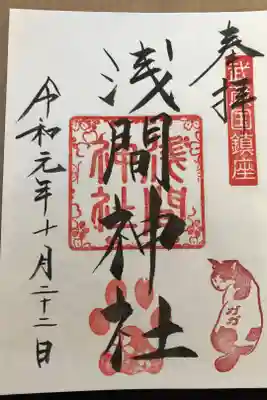 奉拝
武蔵国鎮座
浅間神社
浅間神社
令和元年十月二十二日
ガガ